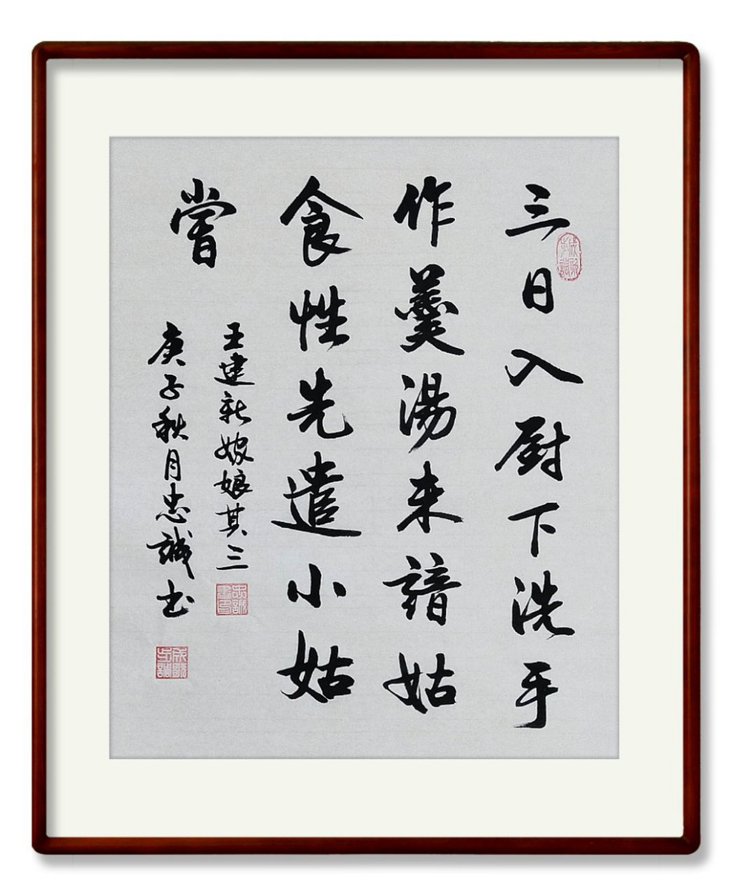 三日入厨下洗手
作羹湯未諳姑
食性先遣小姑
嘗
王建新嫁娘其三
庚子秋月忠誠书